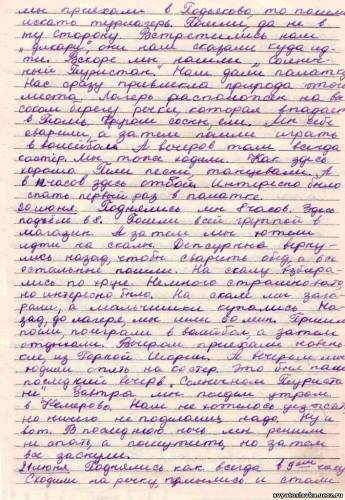 мы приехали в Подъяково, то пошли
искать турлагерь. Пошли да не в
ту сторону. Встретились нам
„дикари" они нам сказали куда ид-
ти. Вскоре мы нашли „Солнеч-
ный Турист". Нам дали палатку
Нас сразу привлекла природа этого
места. Лагерь расположен на вы-
соком берегу речки, которая впадает
в Томь. Кругом сосны, ели. Мы всё
сварили, а затем пошли играть
в волейбол. А вечером там всегда
костёр. Мы тоже ходили. Как здесь
хорошо. Пели песни, танцевали. А
в 11 часов здесь отбой. Интересно было
спать первый раз в палатке.
20 июня. Поднялись мы 8 часов. Здесь
подъём в 8. Пошли всей группой в
магазин. А затем мы хотели
идти на скалы. Дежурные верну-
лись назад, чтобы сварить обед, а все
остальные пошли. На скалу взбира-
лись по круче. Немного страшновато,
но интересно было. На скале мы заго-
рали, а мальчишки купались. На-
зад, до лагеря мы шли 20 мин. Пришли
поели, поиграли в волейбол, а затем
отдыхали. Вечером приехали новень-
кие, из Горной Шории. А вечером мы
ходили опять на костёр. Это был наш
последний вечер в „Солнечном Туристе
не". Завтра мы поедем утром
в Кемерово. Нам не хотелось уезжать
но ничего не поделаешь надо. Ну и
вот. В последнюю ночь мы решили
не спать, а пошутить, но затем
все заснули.
21 июня. Поднялись как всегда в 9 часу.
Сходили на речку, умылись и стали
www.svyatoslavka.ucoz.ru